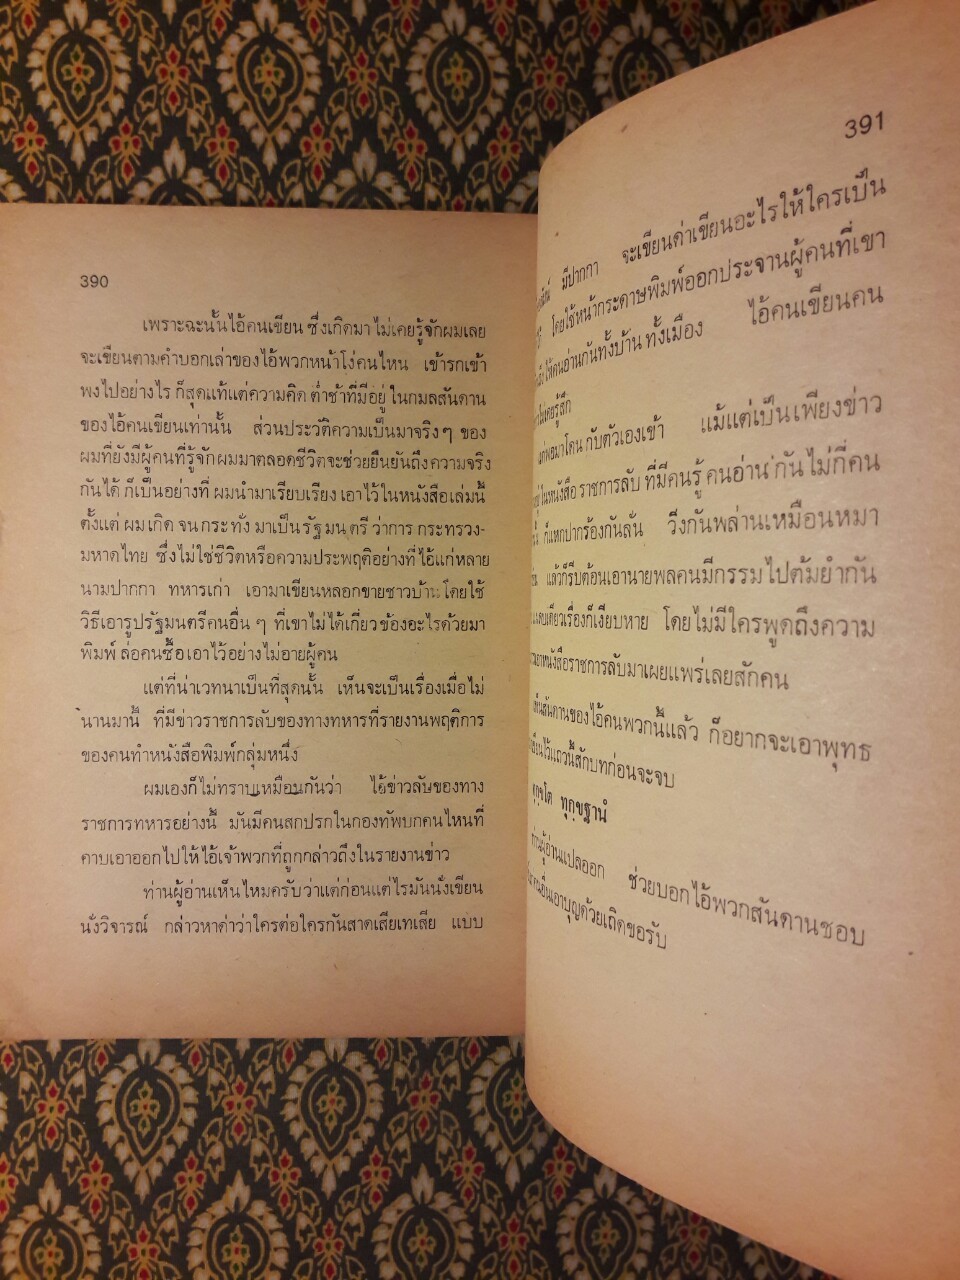 390
เพราะฉะนั้นไอ้คนเขียน ซึ่งเกิดมา ไม่เคยรู้จักผมเลย
จะเขียนตามคำบอกเล่าของไอ้พวกหน้าโง่คนไหน เข้ารกเข้า
พงไปอย่างไร ก็สุดแท้แต่ความคิด ต่ำช้าที่มีอยู่ ในกมลสันดาน
ของไอ้คนเขียนเท่านั้น ส่วนประวัติความเป็นมาจริง ๆ ของ
ผมที่ยังมีผู้คนที่รู้จัก ผมมาตลอดชีวิตจะช่วยยืนยันถึงความจริง
กันได้ ก็เป็นอย่างที่ ผมนำมาเรียบเรียง เอาไว้ในหนังสือเล่มนี้
ตั้งแต่ ผม เกิด จน กระ ทั่ง มาเป็น รัฐ มน ตรี ว่าการ กระทรวง-
มหาดไทย ซึ่งไม่ใช่ชีวิตหรือความประพฤติอย่างที่ ไอ้แก่หลาย
นามปากกา ทหารเก่า เอามาเขียนหลอกขายชาวบ้าน โดยใช้
วิธีเอารูปรัฐมนตรีคนอื่น ๆ ที่เขาไม่ได้เกี่ยวข้องอะไรด้วยมา
พิมพ์ ล่อคนซื้อ เอาไว้อย่างไม่อายผู้คน
แต่ที่น่าเวทนาเป็นที่สุดนั้น เห็นจะเป็นเรื่องเมื่อไม่
นานมานี้ ที่มีข่าวราชการลับของทางทหารที่รายงานพฤติการ
ของคนทำหนังสือพิมพ์กลุ่มหนึ่ง
ผมเองก็ไม่ทราบเหมือนกันว่า ไอ้ข่าวลับของทาง
ราชการทหารอย่างนี้ มันมีคนสกปรกในกองทัพบกคนไหนที่
คาบเอาออกไปให้ไอ้เจ้าพวกที่ถูกกล่าวถึงในรายงานข่าว
ท่านผู้อ่านเห็นไหมครับว่าแต่ก่อนแต่ไรมันนั่งเขียน
นั่งวิจารณ์ กล่าวหาด่าว่าใครต่อใครกันสาดเสียเทเสีย แบบ
391
มีปากกา จะเขียนด่าเขียนอะไรให้ใครเป็น
โดยใช้หน้ากระดาษพิมพ์ออกประจานผู้คนที่เขา
ให้คนอ่านกันทั้งบ้าน ทั้งเมือง ไอ้คนเขียนคน
ไม่เคยรู้สึก
มาโดน กับตัวเองเข้า แม้แต่เป็น เพียงข่าว
ในหนังสือ ราชการลับ ที่มีคนรู้ คนอ่าน กัน ไม่กี่คน
ก็แหกปากร้องกันลั่น วิ่งกันพล่านเหมือนหมา
แล้วก็รีบต้อนเอานายพลคนมีกรรม ไปต้มยำกัน
เดียวเรื่องก็เงียบหาย โดยไม่มีใครพูดถึงความ
หนังสือราชการลับมาเผยแพร่เลยสักคน
สันดานของไอ้คนพวกนี้แล้ว ก็อยากจะเอาพุทธ
ไว้แถวนี้สักบทก่อนจะจบ
ทุกฺขฐานํ
ท่านผู้อ่านแปลออก ช่วยบอกไอ้พวกสันดานชอบ
เอาบุญด้วยเถิดขอรับ